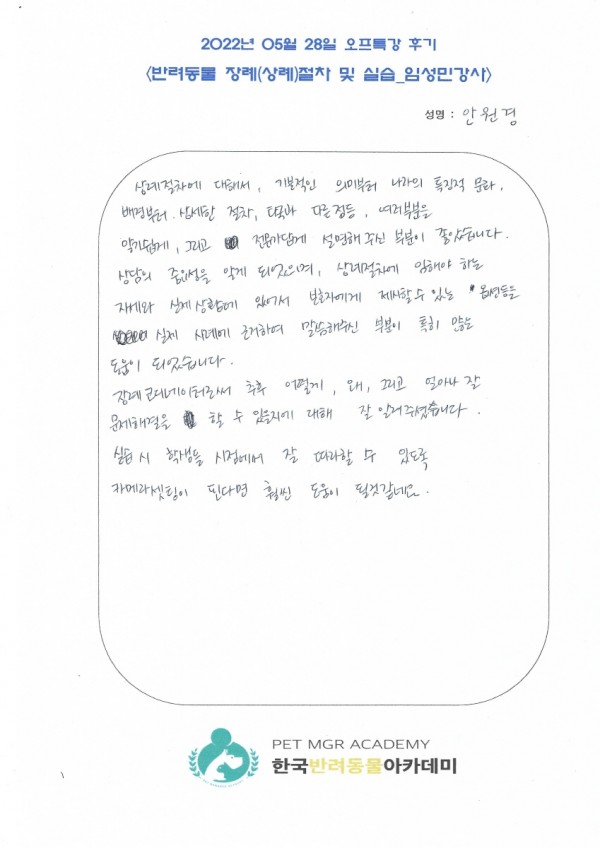 2022년 05월 28일 오프특강 후기
<반려동물 장례(상례)절차 및 실습_임성민강사>
성명 : 안원경
상례절차에 대해서, 기본적인 의미부터 나라의 특징적 문화,
배경부터 상세한 절차, 다른점등, 여러부분을
알기쉽게, 그리고 전문가답게 설명해 주신 부분이 좋았습니다.
상담의 중요성을 알게 되었으며, 상례절차에 임해야 하는
자세와 실제상황에 있어서 보호자에게 제시할 수 있는 옵션등을
실제 사례에 근거하여 말씀해주신 부분이 특히 많은
도움이 되었습니다.
장례코디네이터로서 추후 어떻게, 왜, 그리고 얼마나 잘
문제해결을 할 수 있을지에 대해 잘 알려주셨습니다.
실습시 학생들 시점에서 잘 따라할 수 있도록
카메라셋팅이 된다면 훨씬 도움이 될것같네요.
PET MGR ACADEMY
한국반려동물아카데미